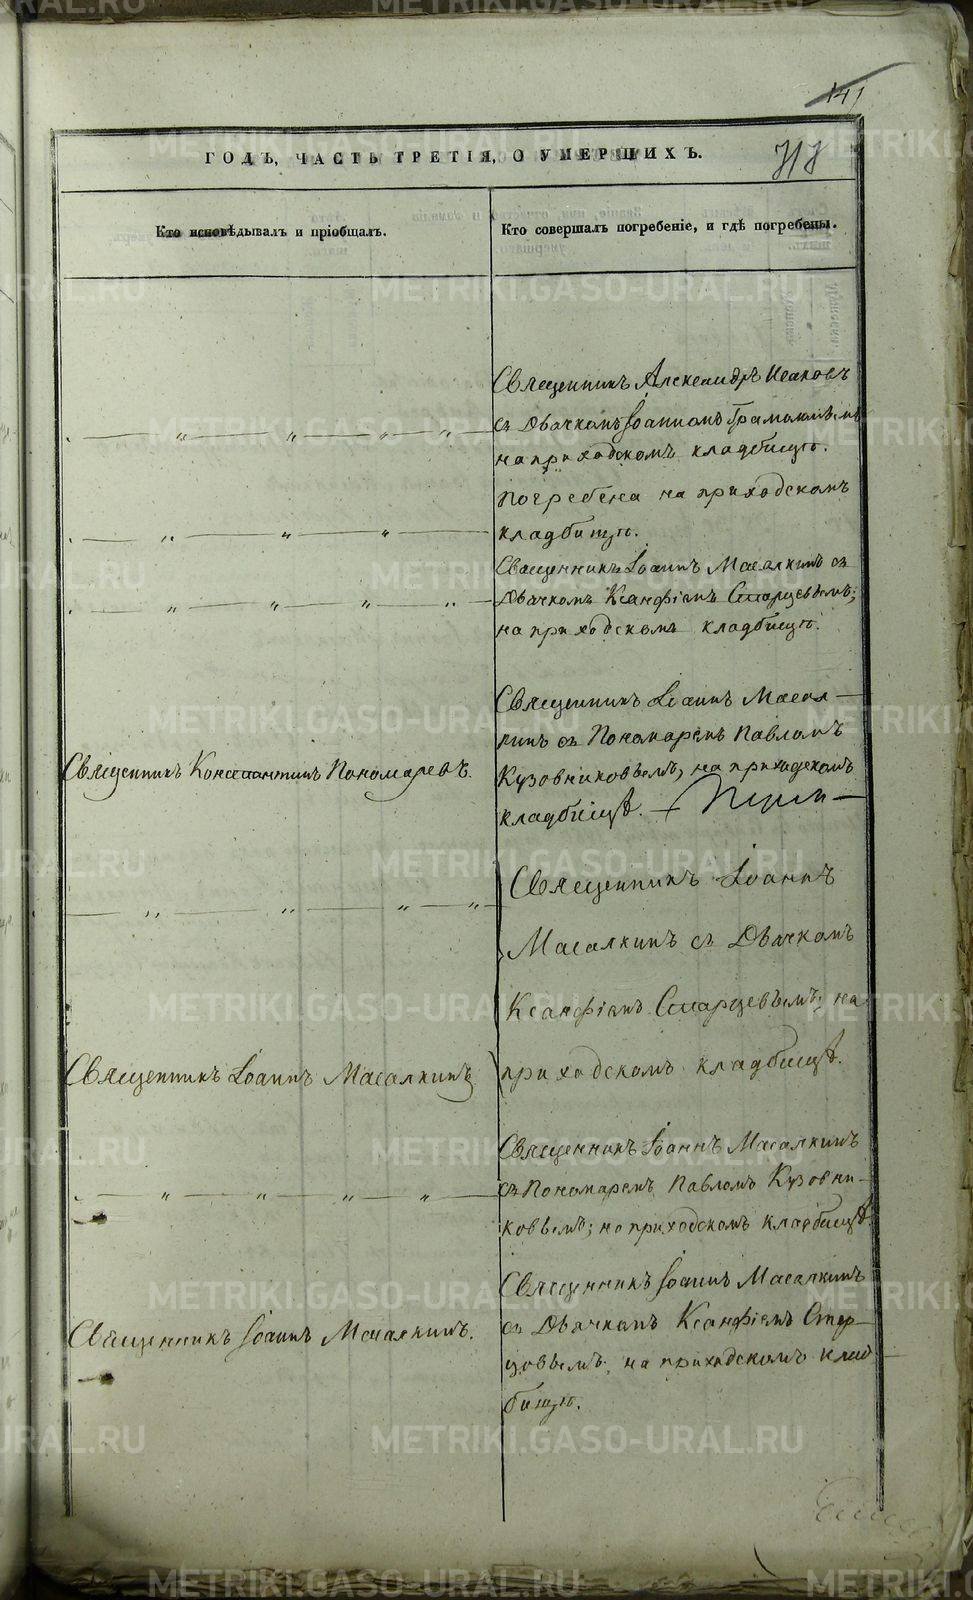 141
ГОДЪ, ЧАСТЬ ТРЕТІЯ, О УМЕРШИХЪ.
Кто исповѣдывалъ и пріобщалъ.
Кто совершалъ погребеніе, и гдѣ погребены.
Священникъ Александръ Исаковъ
съ Дьячкомъ Іоанномъ
на приходскомъ кладбищѣ.
Погребена на приходскомъ
кладбищѣ.
Священникъ Іоаннъ Масалкинъ съ
Дьячкомъ Ксанфіемъ Старцевымъ;
на приходскомъ кладбищѣ.
Священникъ Іоаннъ Масал—
кинъ съ Пономаремъ Павломъ
Священникъ Константинъ Пономаревъ.
Кузовниковымъ, на приходскомъ
кладбищѣ.
Священникъ Іоаннъ
Масалкинъ съ Дьячкомъ
Ксанфіемъ Старцевымъ; на
Священникъ Іоаннъ Масалкинъ
приходскомъ кладбищѣ.
Священникъ Іоаннъ Масалкинъ
съ Пономаремъ Павломъ Кузовни—
ковымъ; на приходскомъ кладбищѣ.
Священникъ Іоаннъ Масалкинъ
съ Дьячкомъ Ксанфіемъ Стар—
Священникъ Іоаннъ Масалкинъ.
цовымъ; на приходскомъ клад—
бищѣ.
METRIKI.GASO-URAL.RU